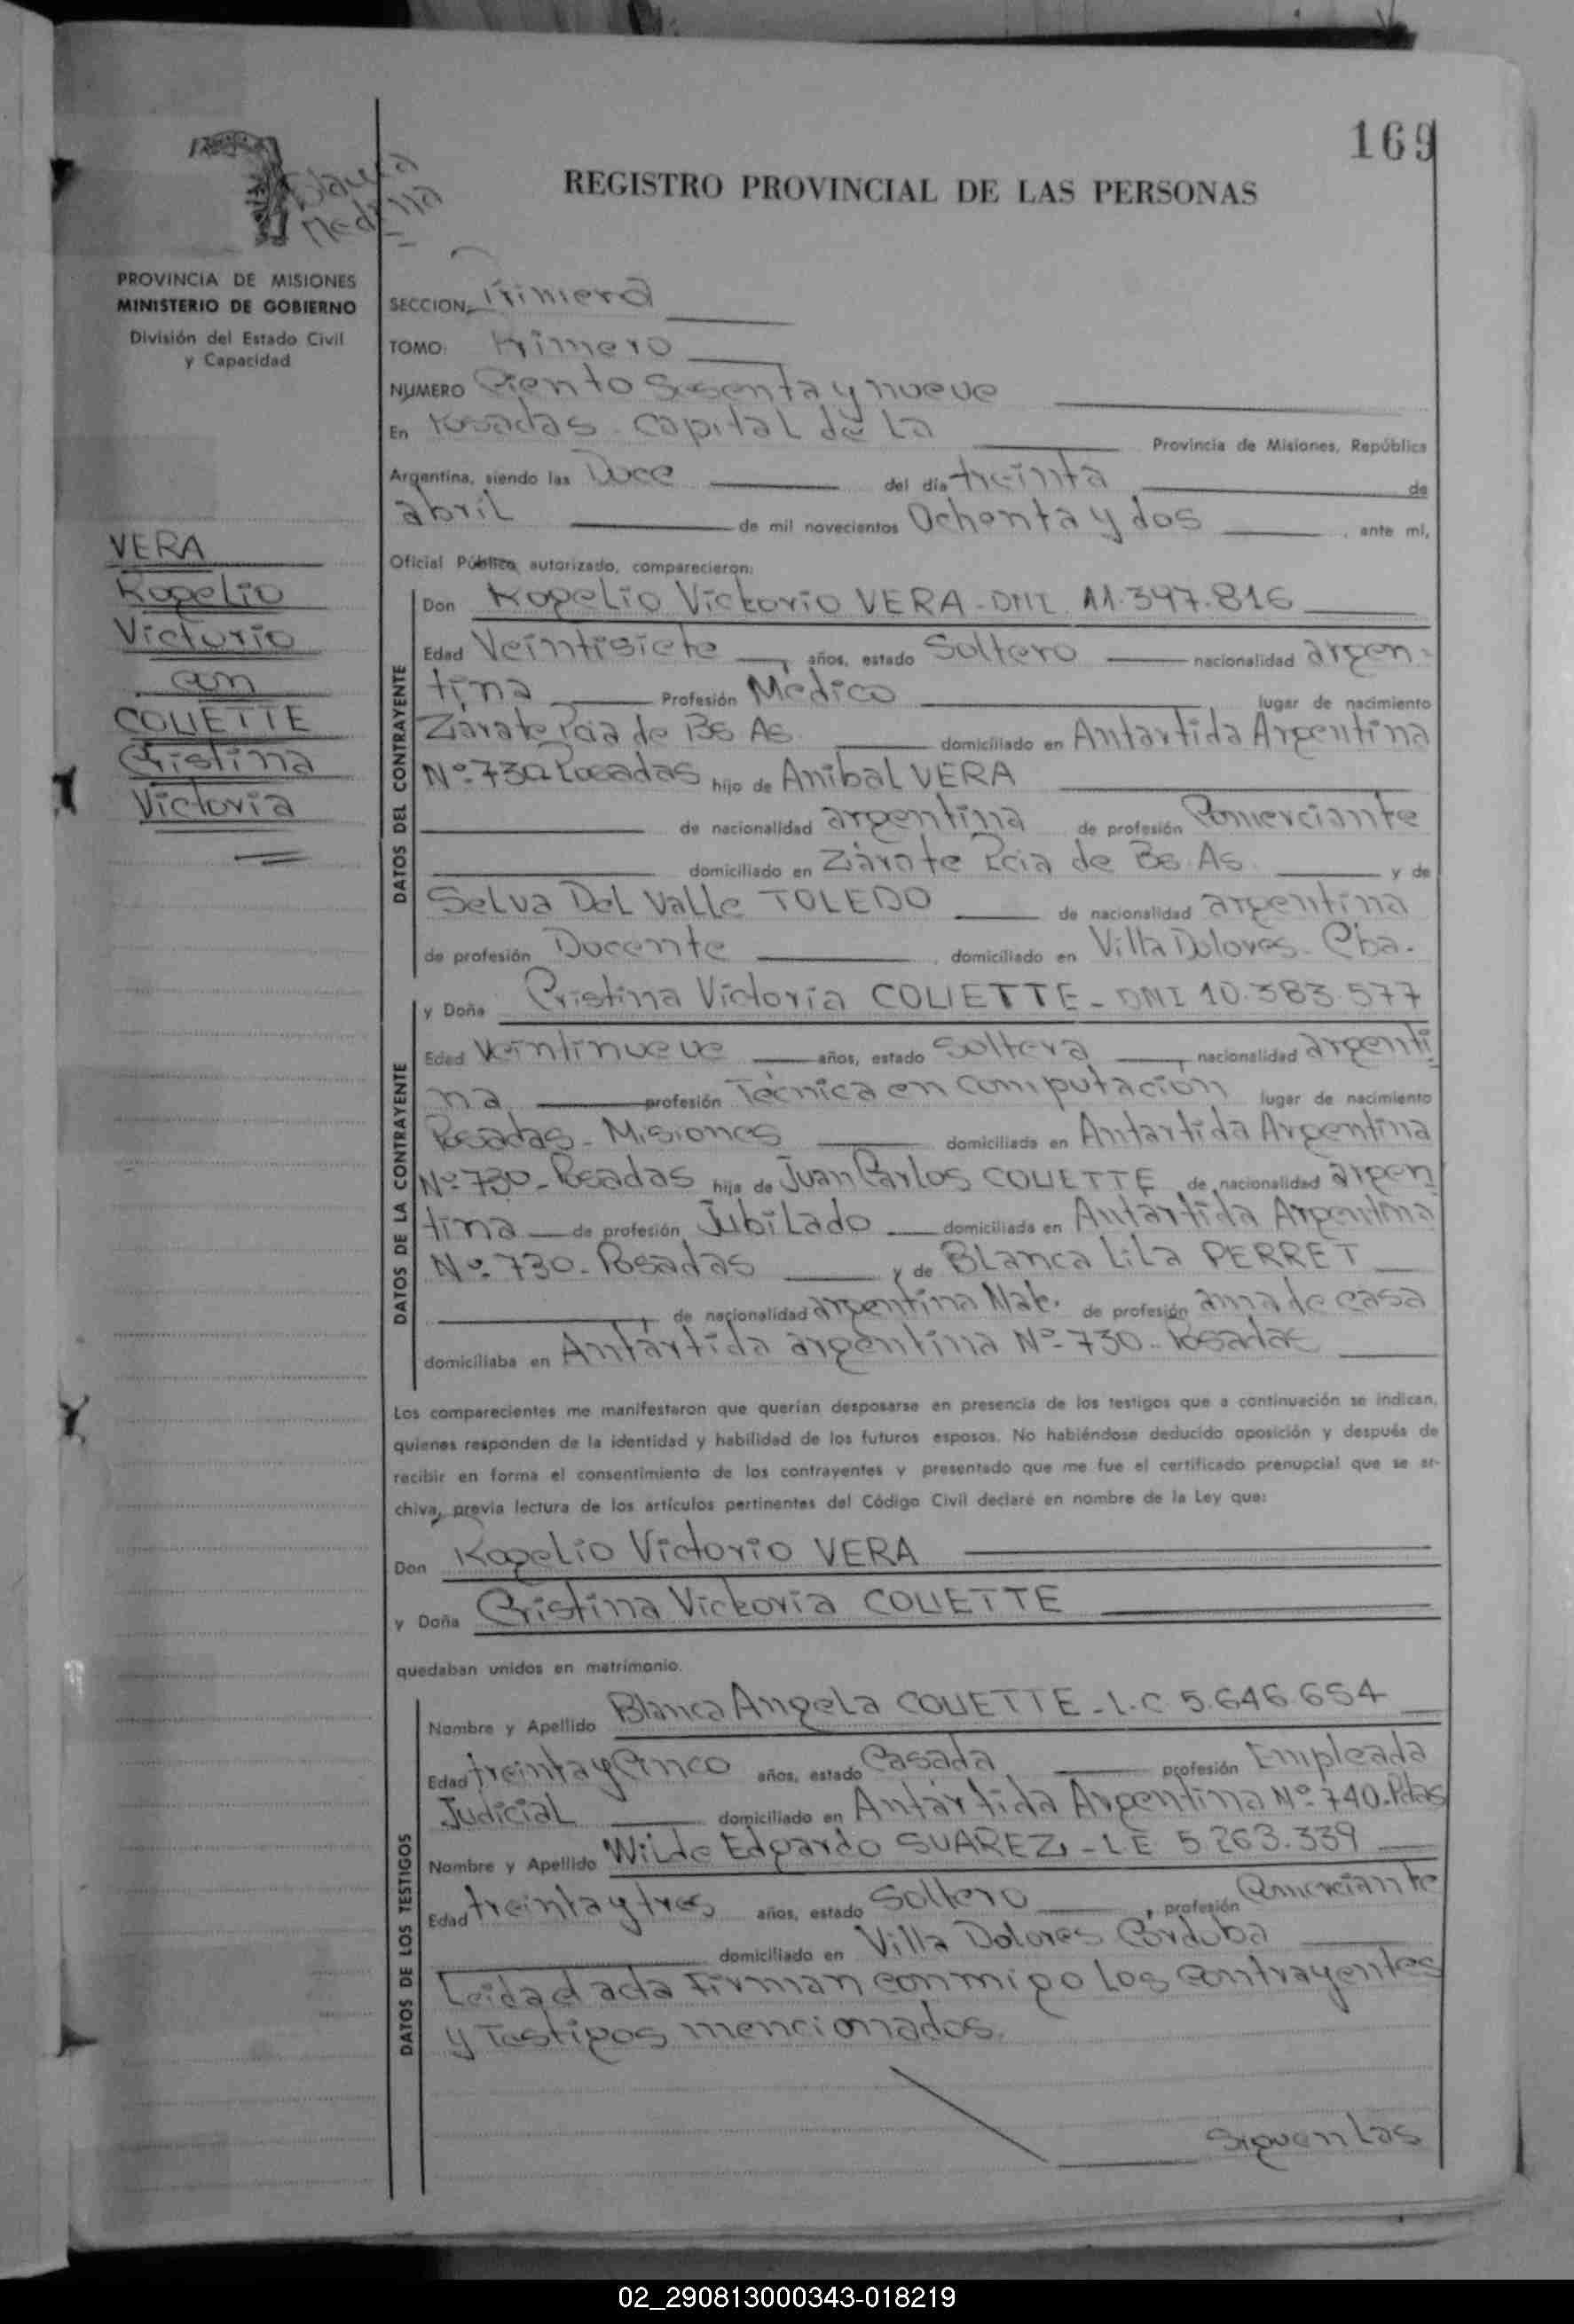 169
REGISTRO PROVINCIAL DE LAS PERSONAS
PROVINCIA DE MISIONES
MINISTERIO DE GOBIERNO
División del Estado Civil
y Capacidad
VERA
Rogelio
Victorio
con
COUETTE
Cristina
Victoria
SECCION: Primera
TOMO: Primero
NUMERO Ciento Sesenta y nueve
En Posadas Capital de La Provincia de Misiones, República
Argentina, siendo las Doce del día treinta de
abril de mil novecientos Ochenta y dos, ante mi,
Oficial Público autorizado, comparecieron:
DATOS DEL CONTRAYENTE
Don Rogelio Victorio VERA - DNI 11.397.816
Edad Veintisiete, años, estado Soltero nacionalidad argen-
tina Profesión Médico lugar de nacimiento
Zárate Pcia de Bs As. domiciliado en Antartida Argentina
Nº 730 Posadas hijo de Anibal VERA
de nacionalidad argentina de profesión Comerciante
domiciliado en Zárate Pcia de Bs As. y de
Selva Del Valle TOLEDO de nacionalidad argentina
de profesión Docente domiciliado en Villa Dolores - Cba.
DATOS DE LA CONTRAYENTE
y Doña Cristina Victoria COUETTE - DNI 10.383.577
Edad Veintinueve años, estado Soltera, nacionalidad argenti
na profesión Técnica en Computación lugar de nacimiento
Posadas - Misiones domiciliada en Antartida Argentina
Nº 730 - Posadas hija de Juan Carlos COUETTE de nacionalidad argen
tina de profesión Jubilado domiciliada en Antártida Argentina
Nº 730 - Posadas y de Blanca Lila PERRET
de nacionalidad argentina Nat. de profesión ama de casa
domiciliaba en Antártida argentina Nº 730 - Posadas
Los comparecientes me manifestaron que querían desposarse en presencia de los testigos que a continuación se indican,
quienes responden de la identidad y habilidad de los futuros esposos. No habiéndose deducido oposición y después de
recibir en forma el consentimiento de los contrayentes y presentado que me fue el certificado prenupcial que se ar-
chiva, previa lectura de los artículos pertinentes del Código Civil declaré en nombre de la Ley que:
Don Rogelio Victorio VERA
y Doña Cristina Victoria COUETTE
quedaban unidos en matrimonio.
DATOS DE LOS TESTIGOS
Nombre y Apellido Blanca Angela COUETTE - L.C 5.646.654
Edad treinta y Cinco años, estado Casada profesión Empleada
Judicial domiciliado en Antártida Argentina Nº 740 - Pdas
Nombre y Apellido Wilde Edgardo SUAREZ, - L.E 5.263.339
Edad treinta y tres años, estado Soltero, profesión Comerciante
domiciliado en Villa Dolores Córdoba
Leida el acta Firman conmigo Los Contrayentes
y Testigos mencionados.
Siguen Las
02_290813000343-018219